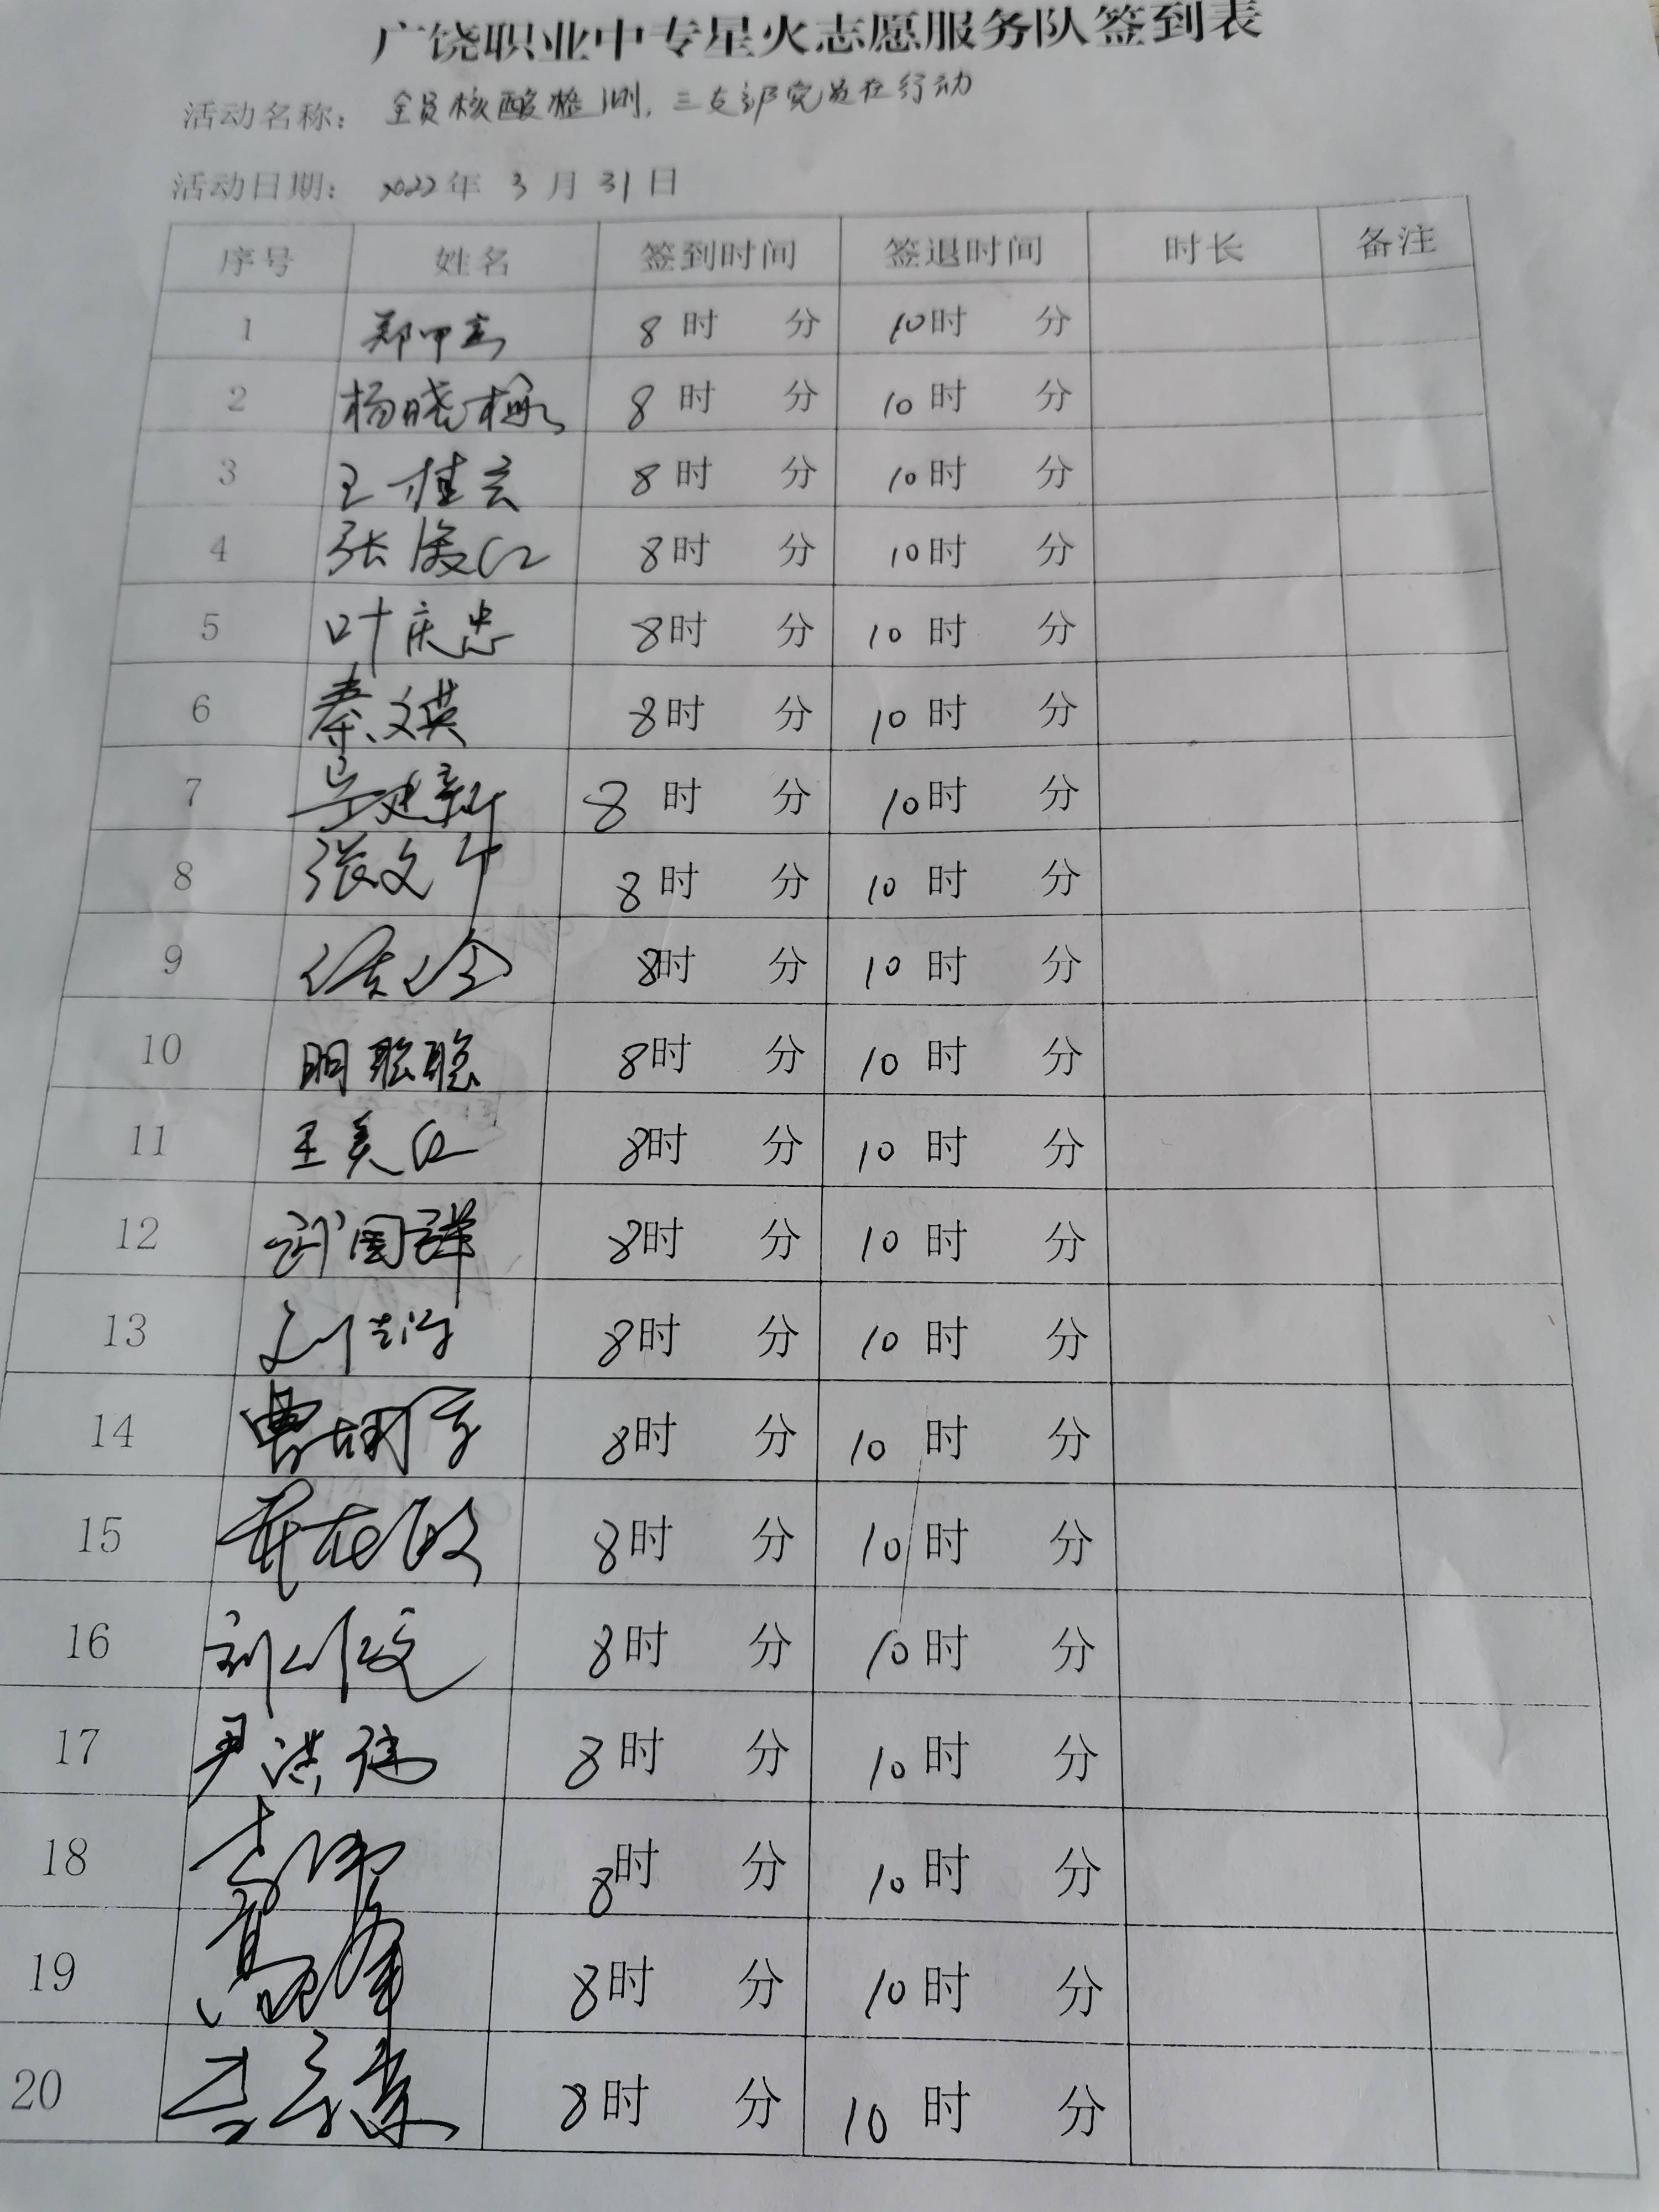 广饶职业中专星火志愿服务队签到表
活动名称： 全员核酸检测，三支部党员在行动
活动日期： 2022年 3 月 31日
序号 姓名 签到时间 签退时间 时长 备注
1 8时 分 10时 分
2 杨晓梅 8时 分 10时 分
3 王桂云 8时 分 10时 分
4 张俊红 8时 分 10时 分
5 叶庆忠 8时 分 10时 分
6 秦文英 8时 分 10时 分
7 8时 分 10时 分
8 张文 8时 分 10时 分
9 8时 分 10时 分
10 明聪聪 8时 分 10时 分
11 王美红 8时 分 10时 分
12 武国群 8时 分 10时 分
13 刘 8时 分 10时 分
14 8时 分 10时 分
15 8时 分 10时 分
16 8时 分 10时 分
17 尹洪德 8时 分 10时 分
18 8时 分 10时 分
19 8时 分 10时 分
20 8时 分 10时 分